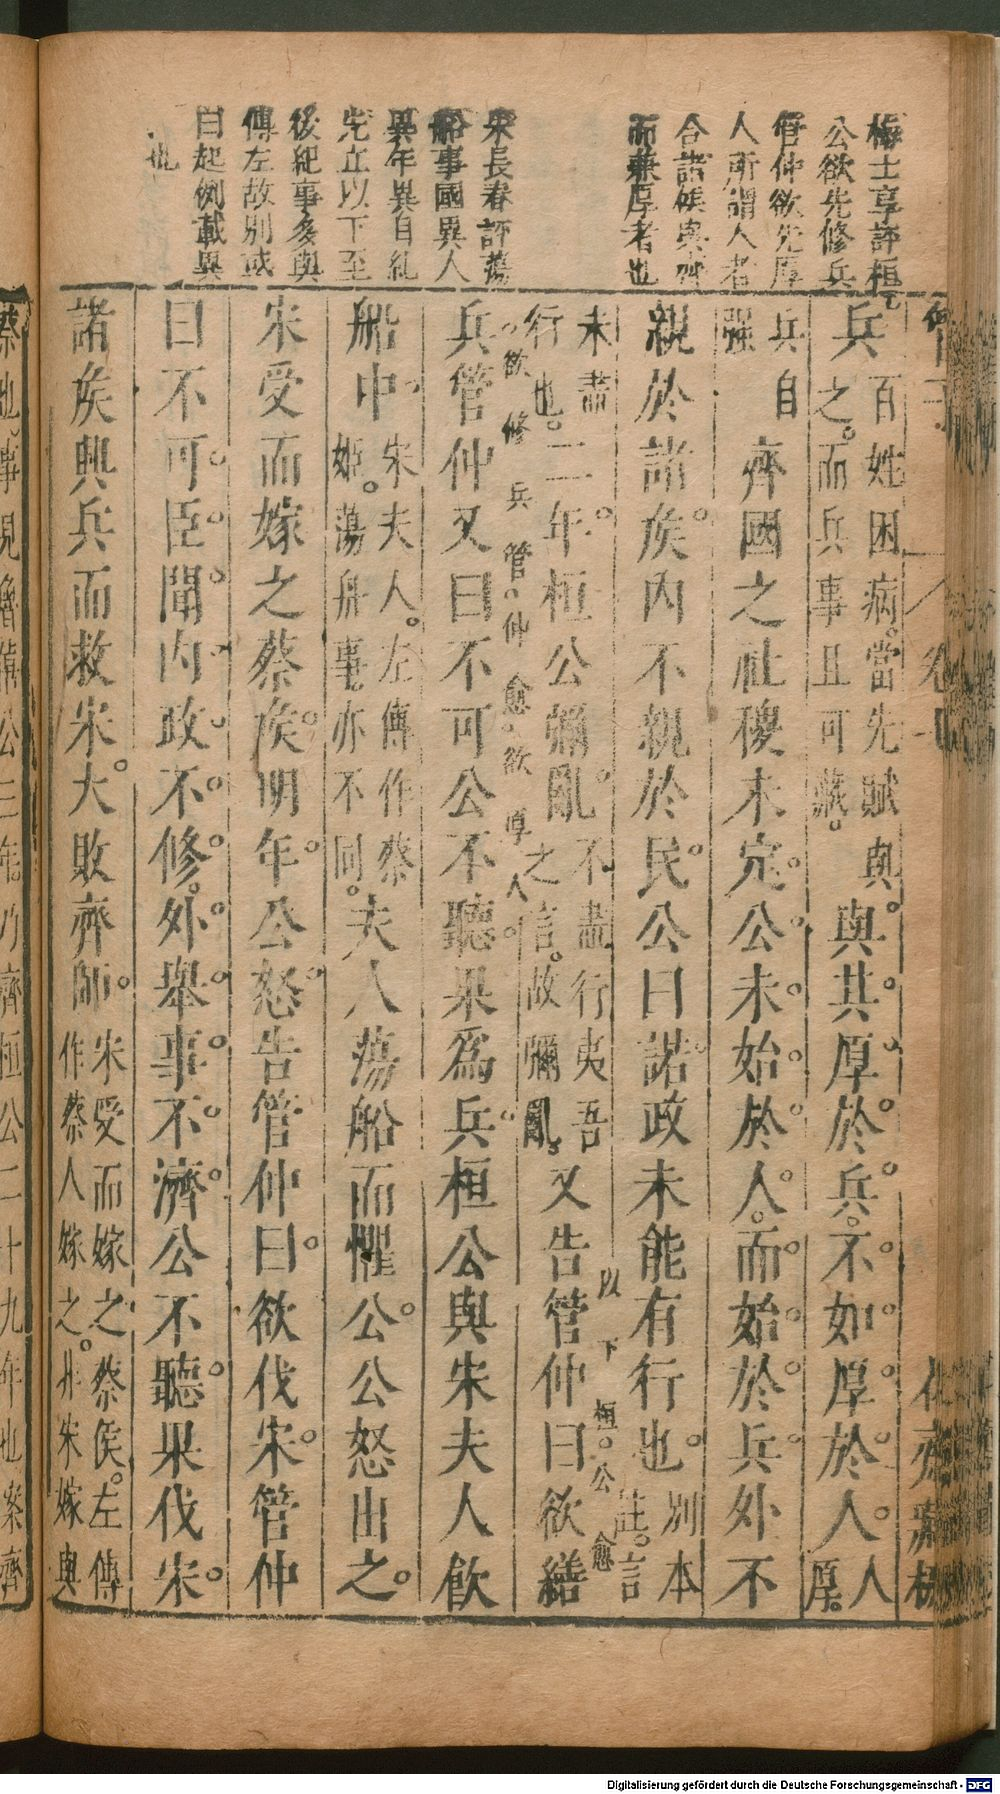 梅士享評桓
公欲先修兵
管仲欲先厚
人所謂人者
合諸侯與齊
而兼厚者也
朱長春評蕩
船事國異人
異年異自糺
先立以下至
後紀事多與
傳左故別或
曰起例載異
也
兵百姓困病當先賦與之而兵事且可藏與其厚於兵不如厚於人人厚
兵自强齊國之社稷未定公未始於人而始於兵外不
親於諸侯內不親於民公曰諾政未能有行也別本註言
以下桓公愈
未盡行也二年桓公彌亂不盡行夷吾之言故彌亂又告管仲曰欲繕
欲修兵管仲愈欲厚人
兵管仲又曰不可公不聽果爲兵桓公與宋夫人飲
船中宋夫人左傳作蔡姬蕩舟事亦不同夫人蕩船而懼公公怒出之
宋受而嫁之蔡侯明年公怒告管仲曰欲伐宋管仲
曰不可臣聞內政不修外舉事不濟公不聽果伐宋
諸侯興兵而救宋大敗齊師宋受而嫁之蔡侯左傳作蔡人嫁之非宋嫁與
蔡也事見魯僖公三年乃齊桓公二十九年也案齊
Digitalisierung gefördert durch die Deutsche Forschungsgemeinschaft - DFG